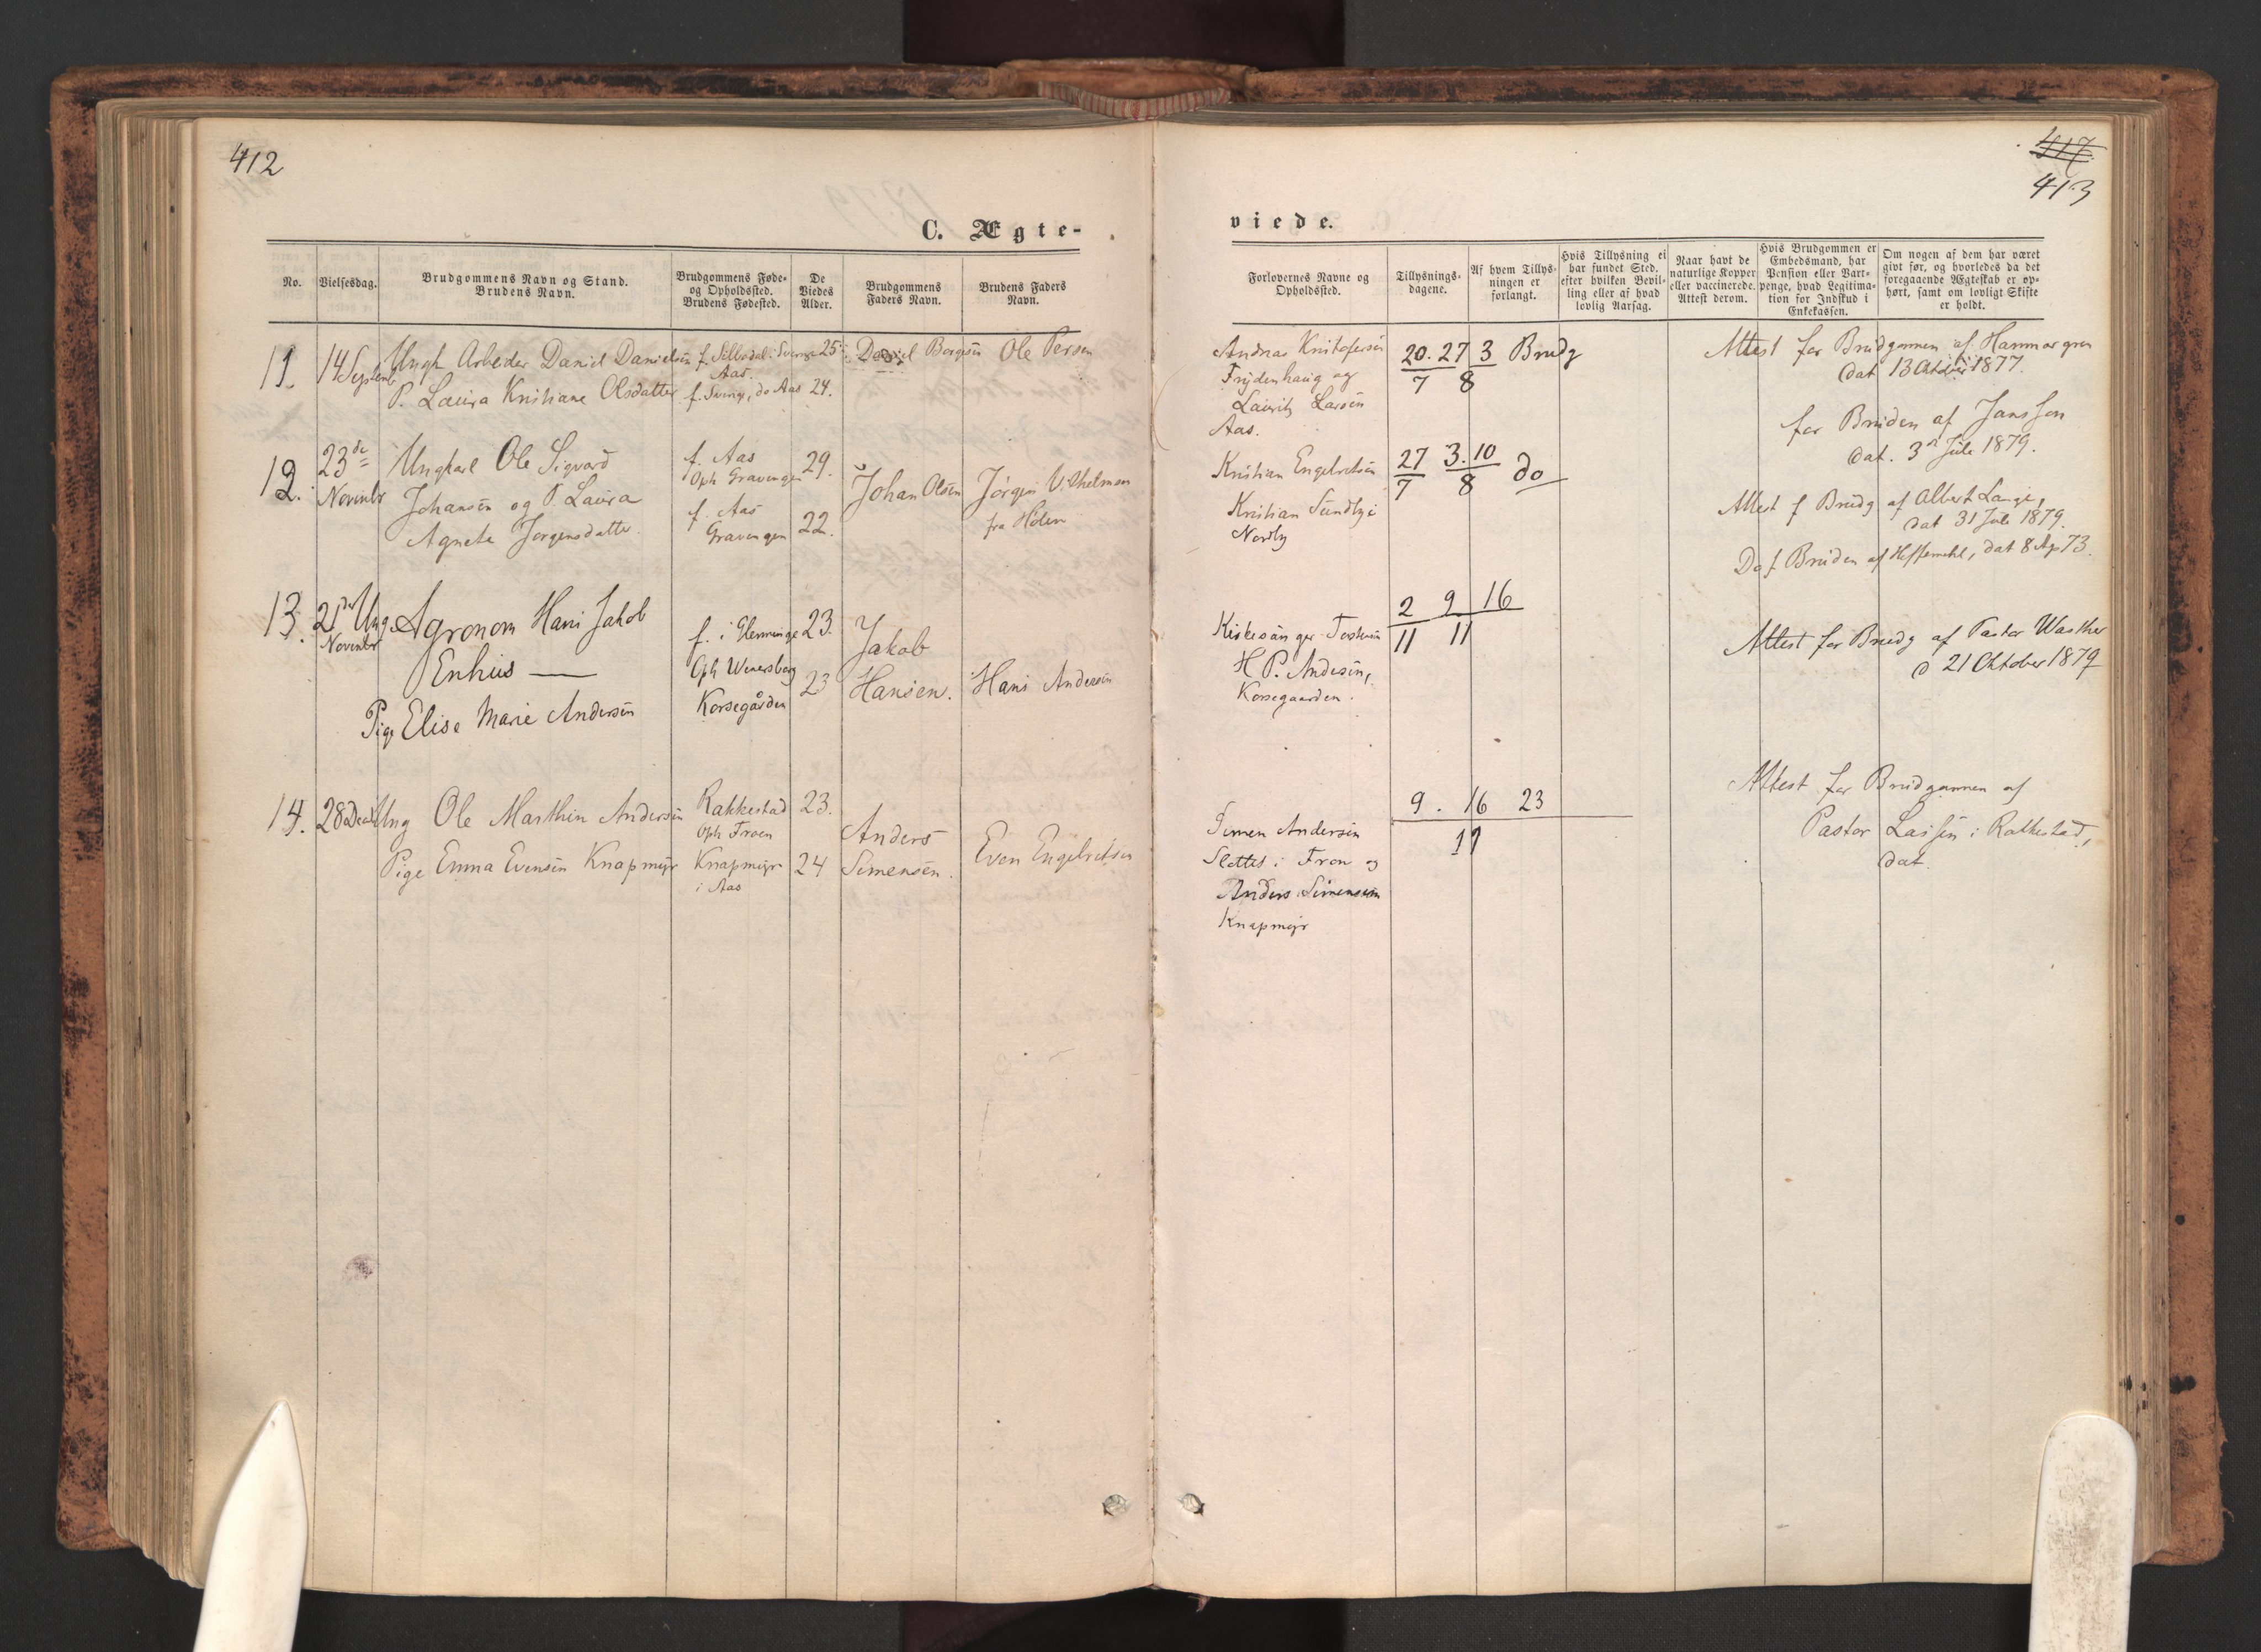 412
C. Ægte-
No.
Vielsesdag.
Brudgommens Navn og Stand.
Brudens Navn.
Brudgommens Føde-
og Opholdssted.
Brudens Fødested.
De
Viedes
Alder.
Brudgommens
Faders Navn.
Brudens Faders
Navn.
11. 14 Septembr Ungk. Arbeider Daniel Danielsen f. Sillodal. Sverige 25 Daniel Borgesen Ole Persen
Aas.
P. Laura Kristiane Olsdatter f. Sverige, do Aas 24.
12. 23de Novembr Ungkarl Ole Sigvard f. Aas 29.
Oph Gravengen
Johansen og P. Laura Johan Olsen Jørgen Vilhelmsen
Agnete Jørgensdatter f. Aas 22. fra Holen
Gravengen
13. 21de Novembr Ung. Agronom Hans Jakob f. i Glemminge 23. Jakob
Enhus — Oph Wenersborg Hansen. Hans Andersen
Pige Elise Marie Andersen Korsegården 23
14. 28 Decbr Ung Ole Marthin Andersen Rakkestad 23. Anders
Oph Froen
Pige Emma Evensen Knapmyr Knapmyr 24 Simensen. Even Engebretsen
i Aas
417
413
viede.
Forlovernes Navne og
Opholdssted.
Tillysnings-
dagene.
Af hvem Tillys-
ningen er
forlangt.
Hvis Tillysning ei
har fundet Sted,
efter hvilken Bevil-
ling eller af hvad
lovlig Aarsag.
Naar havt de
naturlige Kopper
eller vaccinerede.
Attest derom.
Hvis Brudgommen er
Embedsmand, har
Pension eller Vart-
penge, hvad Legitima-
tion for Indskud i
Enkekassen.
Om nogen af dem har været
givt før, og hvorledes da det
foregaaende Ægteskab er op-
hørt, samt om lovligt Skifte
er holdt.
Andreas Kristofersen 20. 27 3 Brudg Attest for Brudgommen af Hammargren
Frydenhaug og 7 8 dat 13 Oktober 1877.
Lauritz Larsen
Aas.
for Bruden af Jansson
dat. 3die Juli 1879.
Kristian Engebretsen 27 3. 10 do
7 8
Kristian Sundby i
Nordby
Attest f Brudg af Albert Lange,
dat 31 Juli 1879.
Do f. Bruden af , dat 8 Ap 73.
2 9 16
Kirkesanger Torkersen 11 11
H P. Andersen,
Korsegaarden.
Attest for Brudg af Pastor Walther
d 21 Oktober 1879
9. 16 23
11
Simen Andersen
Slottet i Fron og
Anders Simensen
Knapmyr
Attest for Brudgommen af
Pastor Lassen i Rakkestad,
dat.